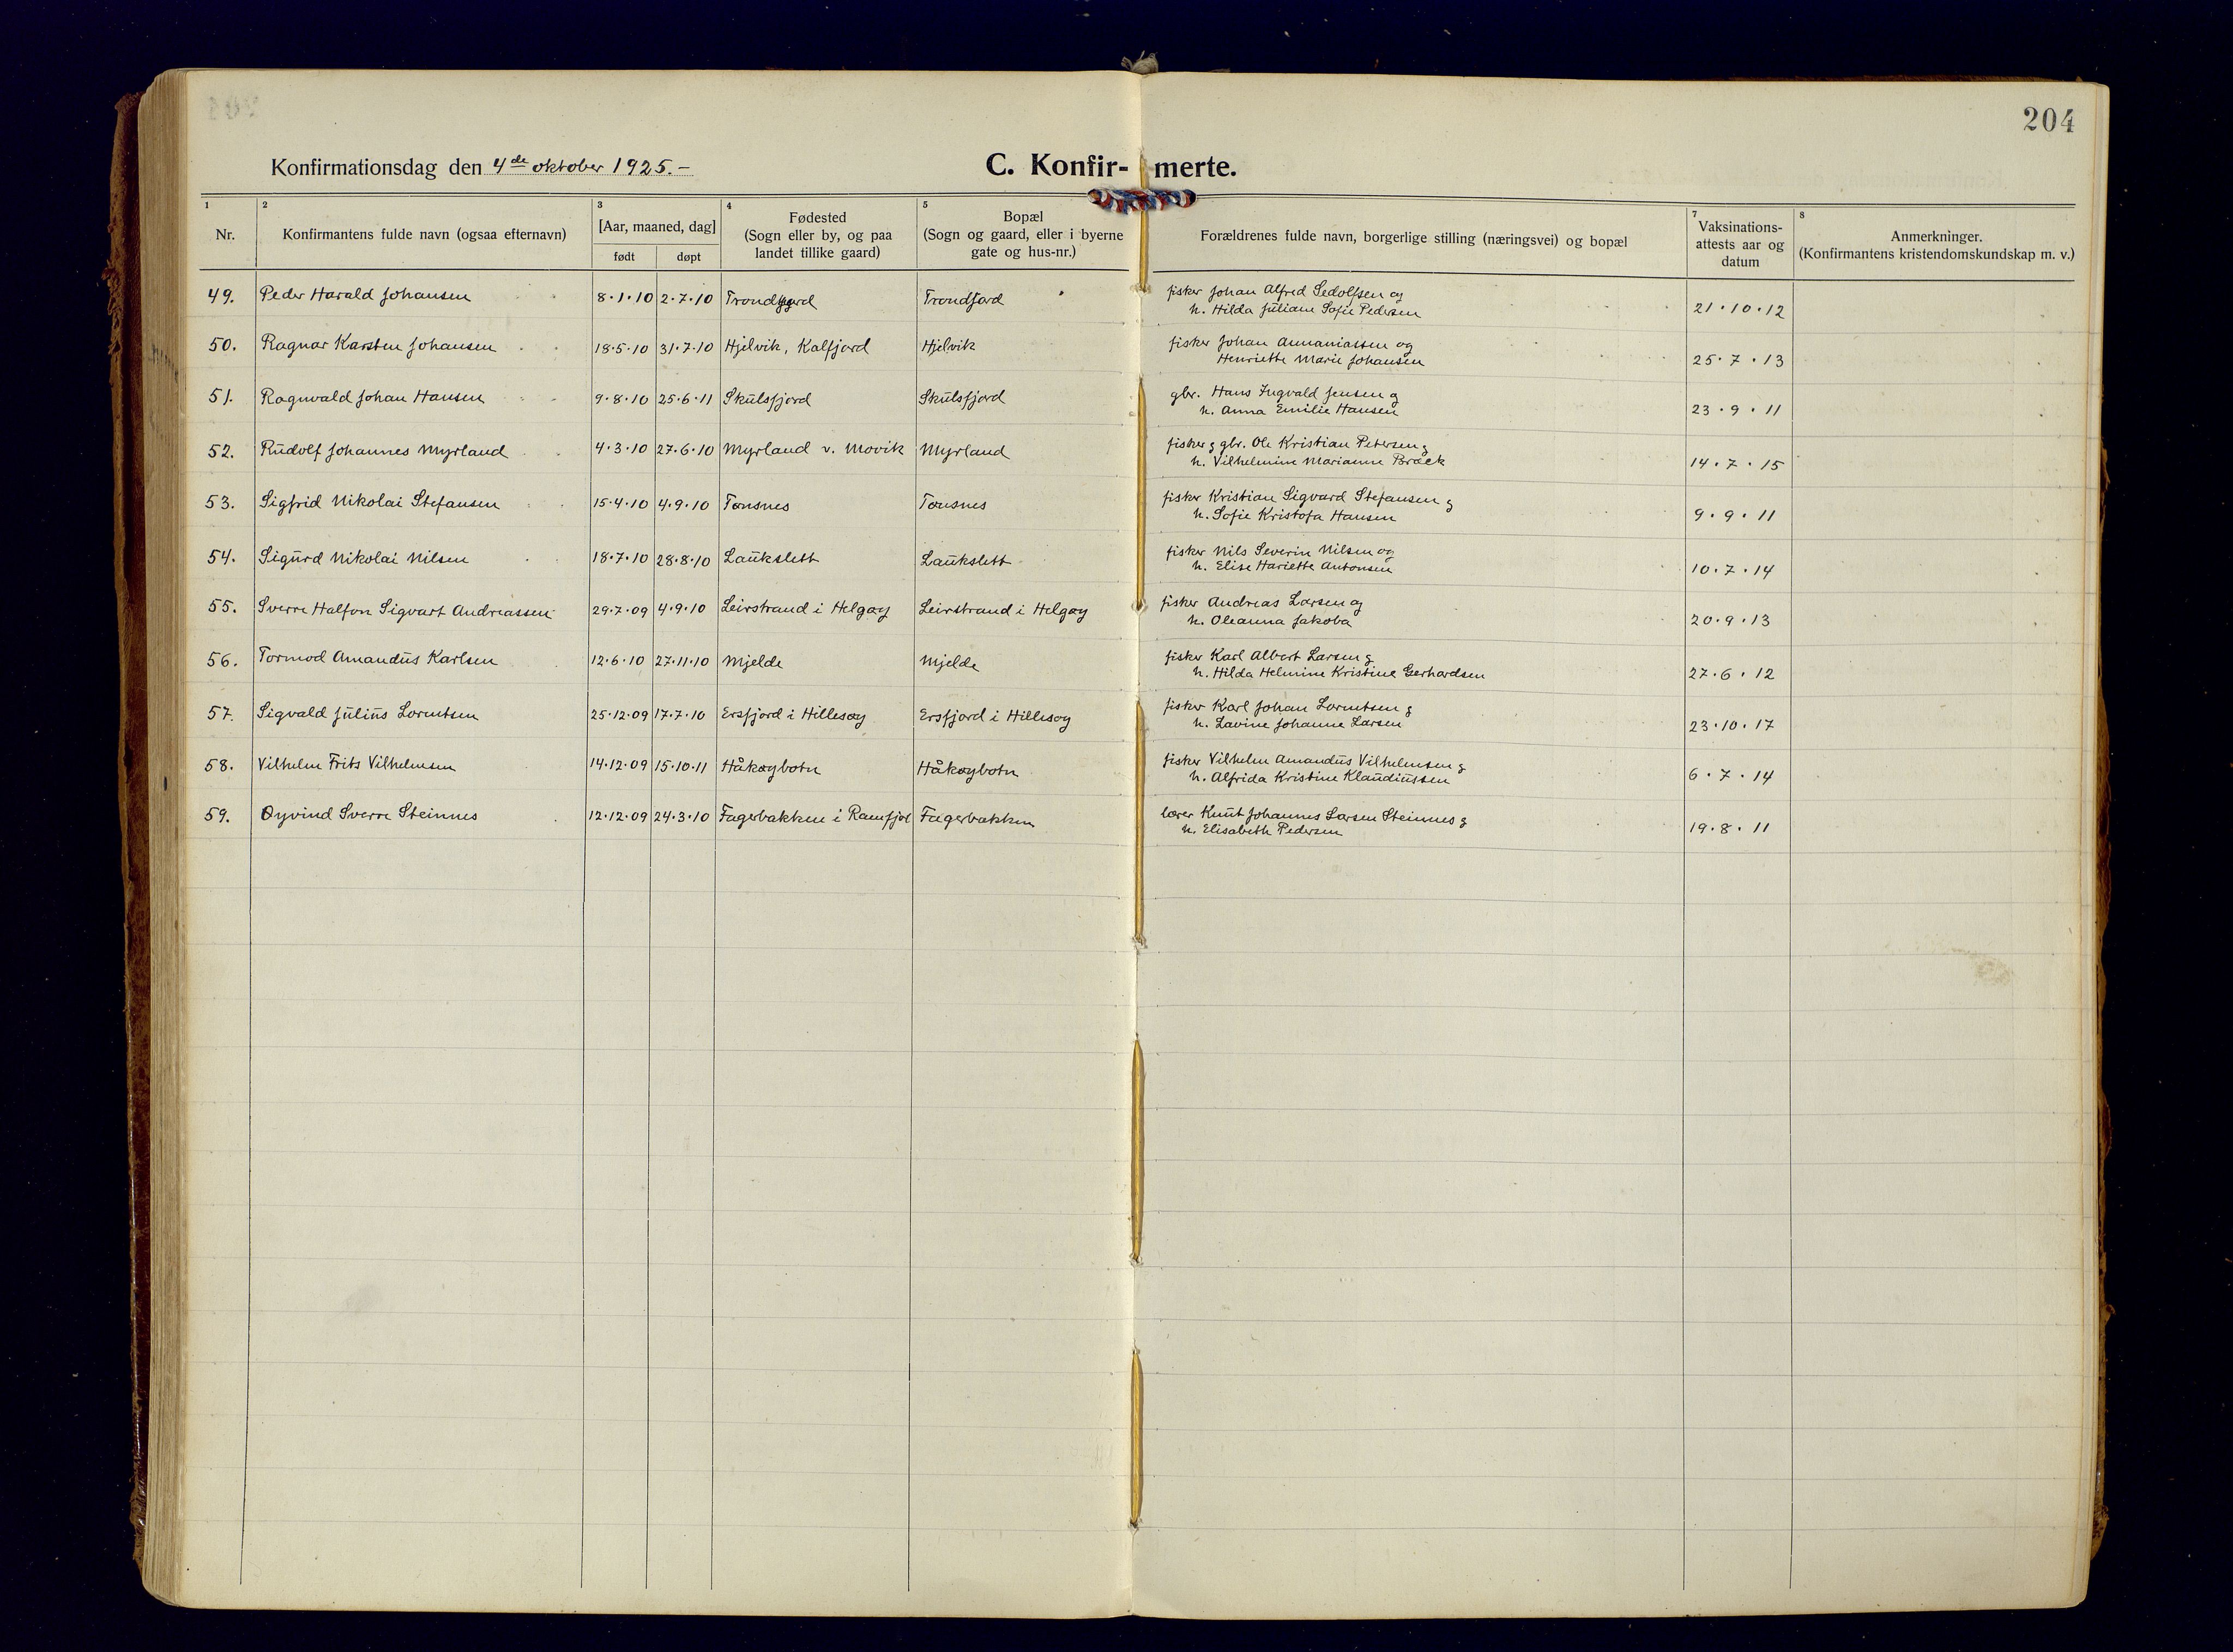 204
Konfirmationsdag den 4de oktober 1925.-
C. Konfir- merte.
1 2 3 4 5 7 8
Nr. Konfirmantens fulde navn (ogsaa efternavn) [Aar, maaned, dag] født døpt Fødested (Sogn eller by, og paa landet tillike gaard) Bopæl (Sogn og gaard, eller i byerne gate og hus-nr.) Forældrenes fulde navn, borgerlige stilling (næringsvei) og bopæl Vaksinations-attests aar og datum Anmerkninger. (Konfirmantens kristendomskundskap m. v.)
49. Peder Harald Johansen 8.1.10 2.7.10 Trondjord Trondjord fisker Johan Alfred Sedolfsen og
h. Hilda Juliane Sofie Pedersen 21.10.12
50. Ragnar Karsten Johansen 18.5.10 31.7.10 Hjelvik, Kalfjord Hjelvik fisker Johan Annaniassen og
Henriette Marie Johansen 25.7.13
51. Ragnvald Johan Hansen 9.8.10 25.6.11 Skulsfjord Skulsfjord gbr. Hans Ingvald Jensen og
h. Anna Emilie Hansen 23.9.11
52. Rudolf Johannes Myrland 4.3.10 27.6.10 Myrland v. Movik Myrland fisker & gbr. Ole Kristian Petersen &
h. Vilhelmine Marianne Bræck 14.7.15
53. Sigfrid Nikolai Stefansen 15.4.10 4.9.10 Tønsnes Tønsnes fisker Kristian Sigvard Stefansen &
h. Sofie Kristofa Hansen 9.9.11
54. Sigurd Nikolai Nilsen 18.7.10 28.8.10 Laukslett Laukslett fisker Nils Severin Nilsen og
h. Elise Hariette Antonsen 10.7.14
55. Sverre Halfon Sigvart Andreassen 29.7.09 4.9.10 Leirstrand i Helgøy Leirstrand i Helgøy fisker Andreas Larsen og
h. Oleanna Jakoba 20.9.13
56. Tormod Amandus Karlsen 12.6.10 27.11.10 Mjelde Mjelde fisker Karl Albert Larsen &
h. Hilda Helmine Kristine Gerhardsen 27.6.12
57. Sigvald Julius Lorentsen 25.12.09 17.7.10 Ersfjord i Hillesøy Ersfjord i Hillesøy fisker Karl Johan Lorentsen &
h. Lavine Johanne Larsen 23.10.17
58. Vilhelm Frits Vilhelmsen 14.12.09 15.10.11 Håkøybotn Håkøybotn fisker Vilhelm Amandus Vilhelmsen &
h. Alfrida Kristine Klaudiussen 6.7.14
59. Øyvind Sverre Steinnes 12.12.09 24.3.10 Fagerbakken i Ramfjol Fagerbakken lærer Knut Johannes Larsen Steinnes &
h. Elisabeth Pedersen 19.8.11